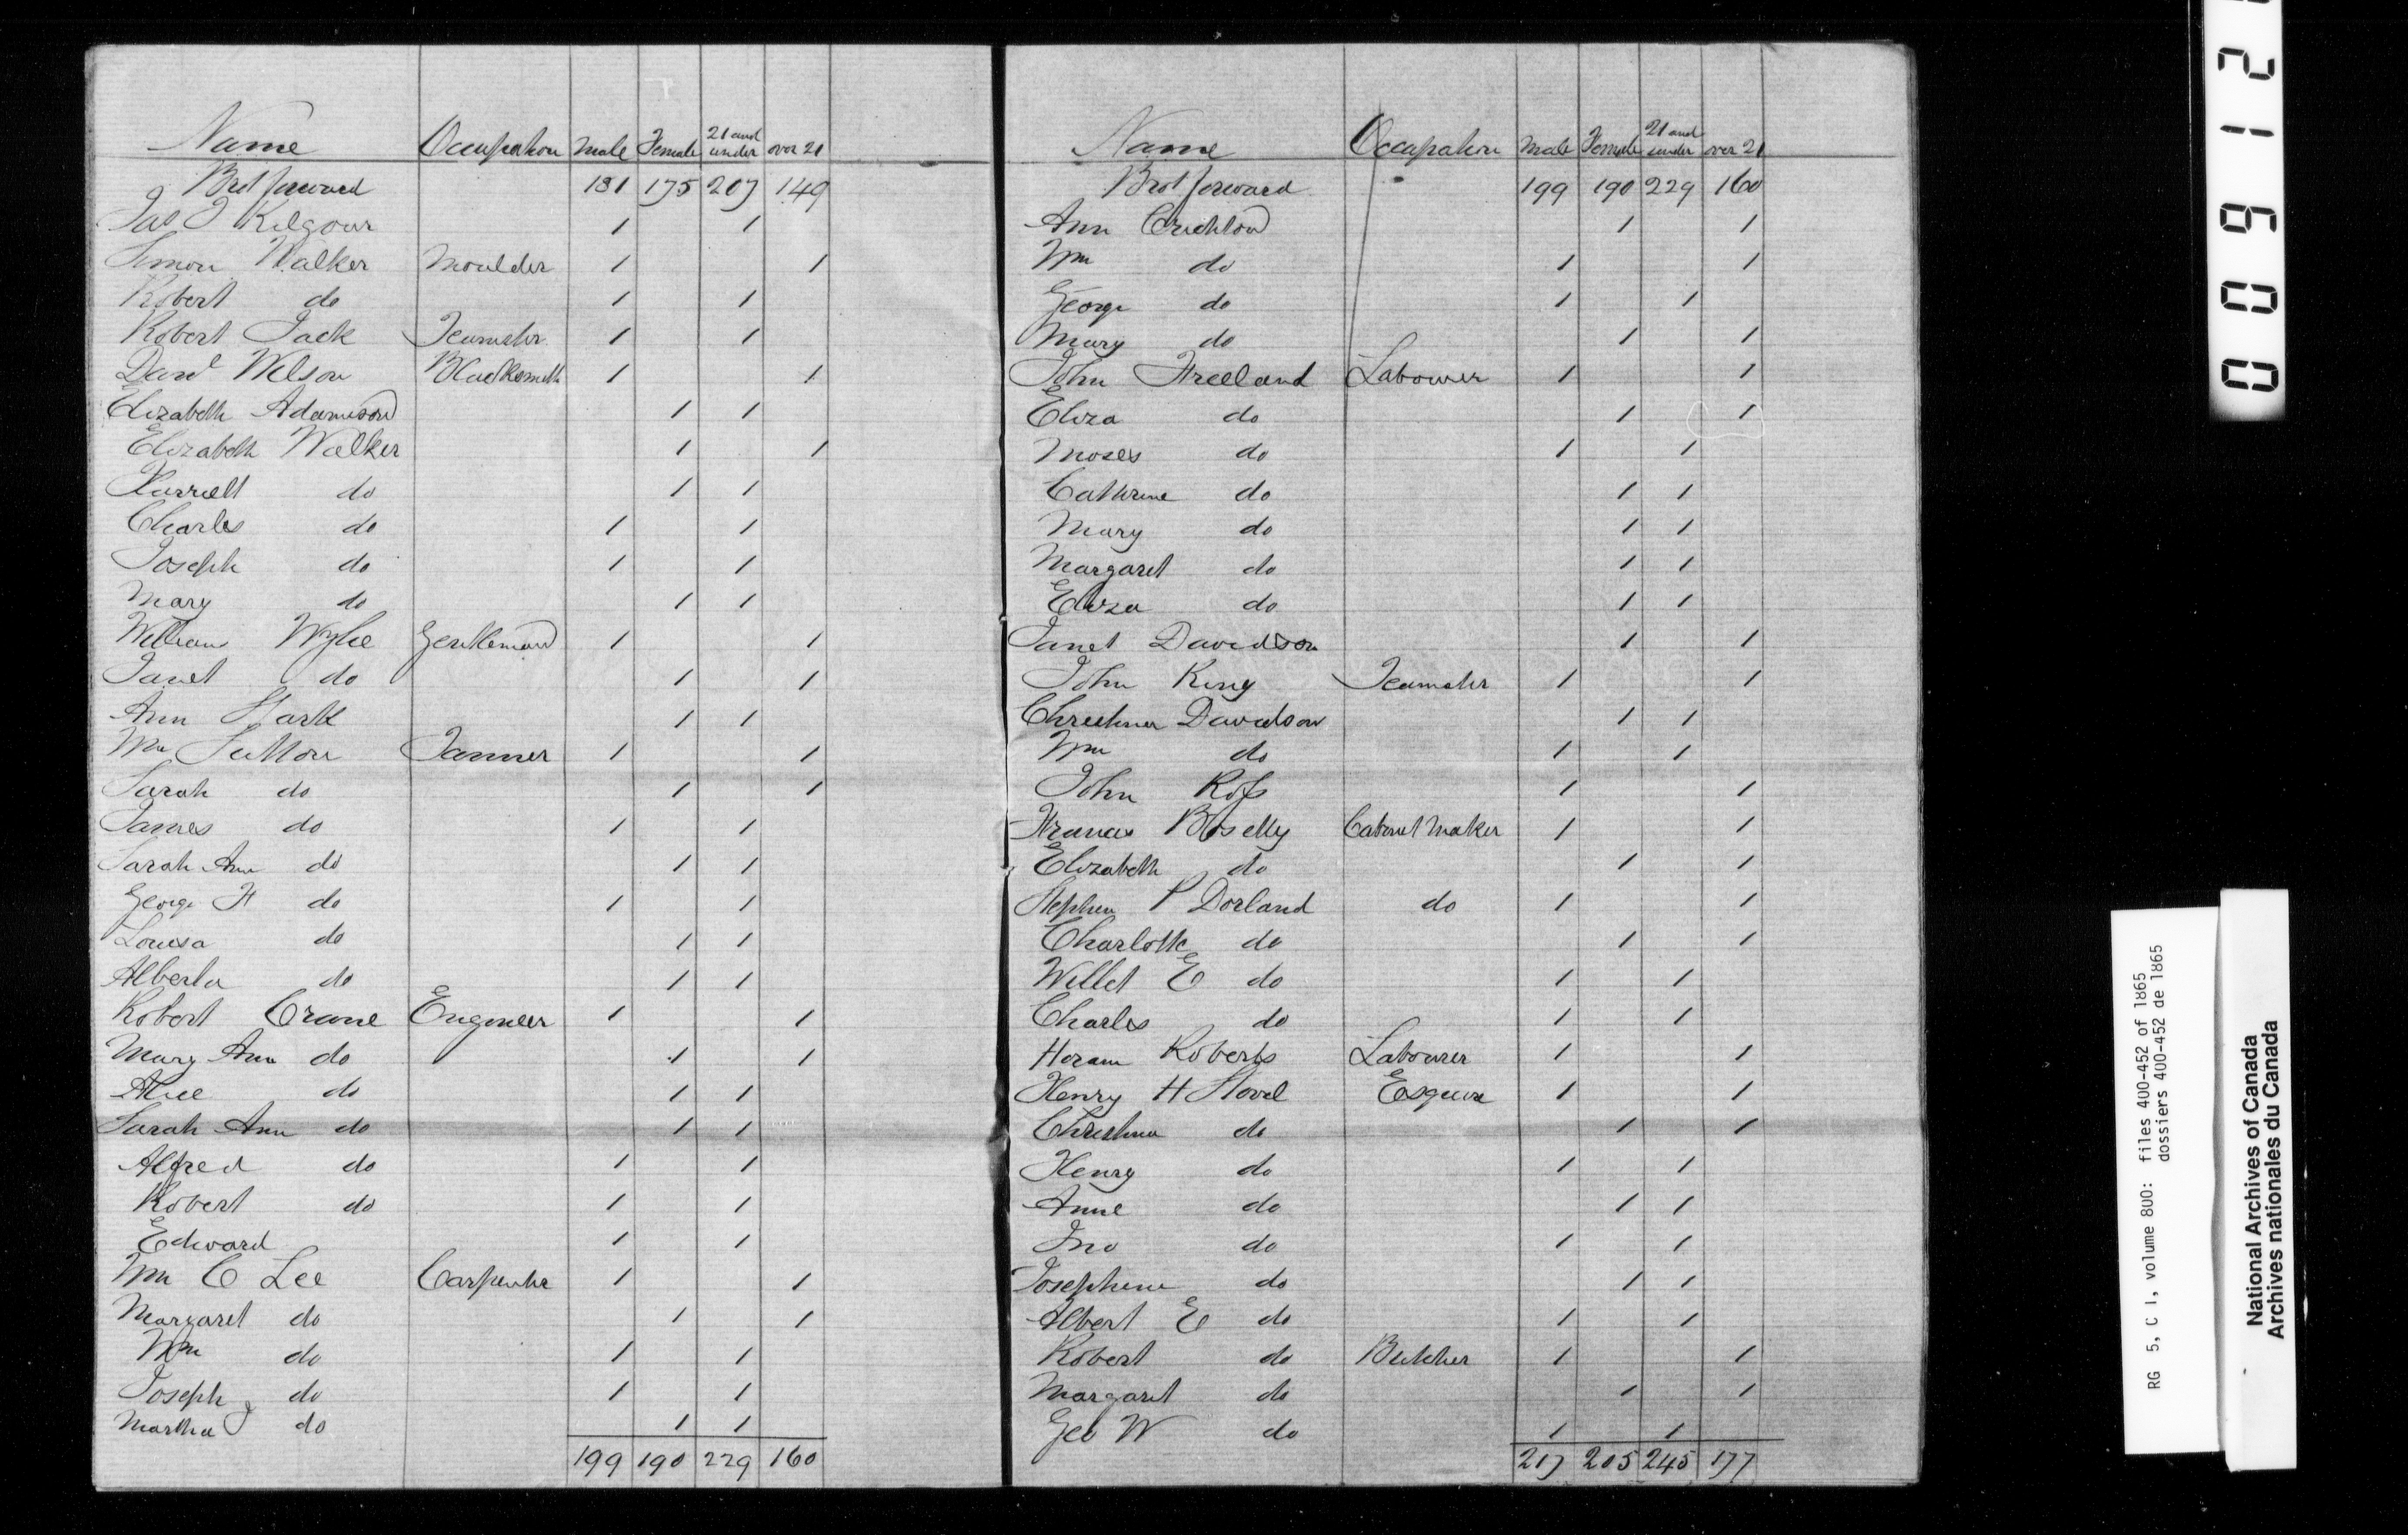 Name Occupation Male Female 21 and under over 21
Brot forward 181 175 207 149
Jas J Kilgour 1 1
Simon Walker Moulder 1 1
Robert do 1 1
Robert Jack Teamster 1 1
Davd Wilson Blacksmith 1 1
Elizabeth Adamson 1 1
Elizabeth Walker 1 1
Harriett do 1 1
Charles do 1 1
Joseph do 1 1
Mary do 1 1
William Wylie Gentleman 1 1
Janet do 1 1
Ann Stark 1 1
Wm Sutton Tanner 1 1
Sarah do 1 1
James do 1 1
Sarah Ann do 1 1
George H do 1 1
Louisa do 1 1
Alberta do 1 1
Robert Crane Engineer 1 1
Mary Ann do 1 1
Alice do 1 1
Sarah Ann do 1 1
Alfred do 1 1
Robert do 1 1
Edward 1 1
Wm C Lee Carpenter 1 1
Margaret do 1 1
Wm do 1 1
Joseph do 1 1
Martha J do 1 1
199 190 229 160
Name Occupation Male Female 21 and under over 21
Brot forward 199 190 229 160
Ann Crichton 1 1
Wm do 1 1
George do 1 1
Mary do 1 1
John Freeland Labourer 1 1
Eliza do 1 1
Moses do 1 1
Cathrine do 1 1
Mary do 1 1
Margaret do 1 1
Eliza do 1 1
Janet Davidson 1 1
John King Teamster 1 1
Christina Davidson 1 1
Wm do 1 1
John Ross 1 1
Francis Boselly Cabinet Maker 1 1
Elizabeth do 1 1
Stephen P Dorland do 1 1
Charlotte do 1 1
Willet E do 1 1
Charles do 1 1
Hiram Roberts Labourer 1 1
Henry H Stovel Esquire 1 1
Christina do 1 1
Henry do 1 1
Anne do 1 1
Jno do 1 1
Josephine do 1 1
Albert E do 1 1
Robert do Butcher 1 1
Margaret do 1 1
Geo W do 1 1
217 205 245 177
000912
RG 5, C 1, volume 800: files 400-452 of 1865
dossiers 400-452 de 1865
National Archives of Canada
Archives nationales du Canada